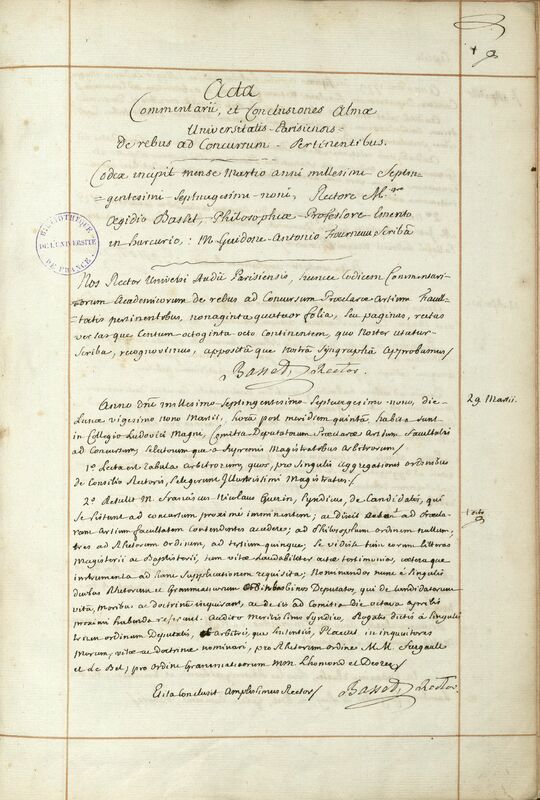 Acta
Commentarii, et Conclusiones Almæ
Universitatis Parisiensis
de rebus ad Concursum Pertinentibus.
Codex incipit mense Martio anni millesimi Septin-
gentesimi Septuagesimi noni, Rectore M.
Ægidio Basset, Philosophiæ Professore Emerito
in harcurio, M. Guidone-Antonio Fourneau Scribâ
BIBLIOTHEQUE
DE L'UNIVERSITÉ
DE FRANCE
Nos Rector Universi Studii Parisiensis, huncce Codicem Commentari-
orum Academicorum de rebus ad Concursum Præclaræ Artium Facul-
tatis pertinentibus, nonaginta quatuor folia, seu paginas, rectas
versasque Centum octoginta octo Continentem, quo Noster utatur
Scriba, recognovimus, appositâque nostrâ Syngraphâ Approbamus/
Basset, Rector.
Anno dni millesimo Septingentesimo Septuagesimo nono, die
Lunæ vigesimo nono Martii, horâ post meridiem quintâ, habita sunt
in Collegio Ludovici Magni, Comitia Deputatorum Præclaræ Artium Facultatis
ad Concursum, Selectorumque a Supremis Magistratibus Arbitrorum/
29 Martii.
1° Lecta est tabula Arbitrorum, quos, pro Singulis Aggregationis ordinibus
de Consilio Rectoris, Selegerunt Illustrissimi Magistratus/
2° Retulit M. Franciscus Nicolaus Guerin, Syndicus, de Candidatis, qui
se Sistunt ad concursum proximè imminentem; ac dixit ad Præcla-
ram Artium facultatem Contendentes accedere; ad Philosophorum ordinem nullum,
tres ad Rhetorum ordinem, ad tertium quinque; Se vidisse tum eorum litteras
Magisterii ac Baptisterii, tum vitæ laudabiliter actæ testimonia, cæteraque
instrumenta ad hanc Supplicationem requisita; Nominandos nunc è Singulis
duobus Rhetorum et Grammaticorum ordinibus binos Deputatos, qui de Candidatorum
vitâ, moribus ac doctrinâ inquirant, ac de iis ad Comitia die octavâ aprilis
proximi habenda referant. Audito Meritissimo Syndico, Rogatis dictis à Singulis
trium ordinum Deputatis, Arbitrisque Intentis, Placuit in inquisitores
Morum, vitæ ac doctrinæ nominari, pro Rhetorum ordine M.M. Furgault
et de Bel; pro ordine Grammaticorum MM Lhomond et
Et ita Conclusit Amplissimus Rector/
Basset, Rector.